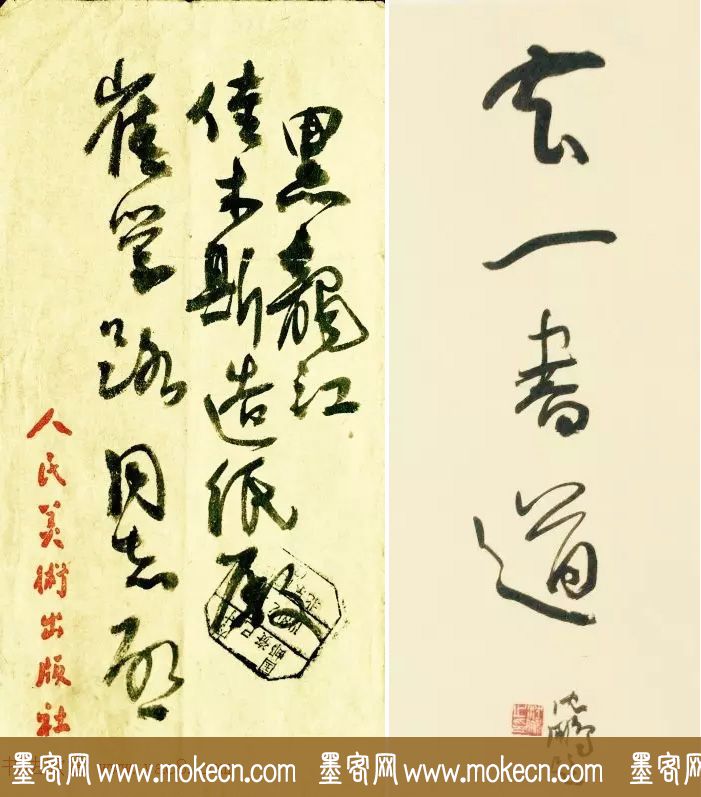 黑龍江
佳木斯造纸厰
崔学路同志启
人民美術出版社
一書道
沈鹏
墨客网 www.mokecn.com 墨客网 www.mokecn.com 墨